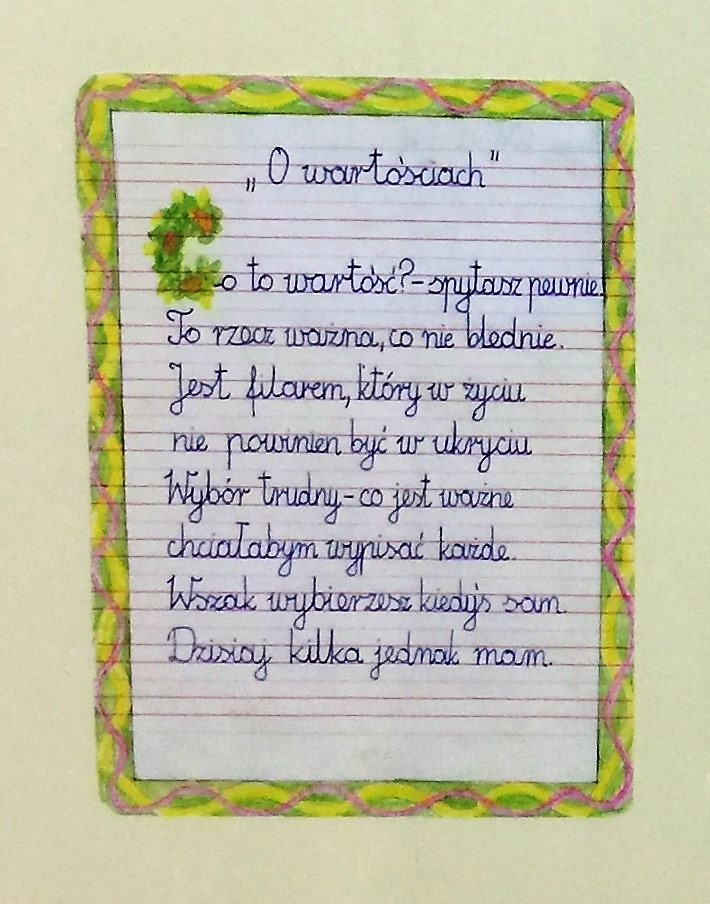 „O wartościach"
Co to wartość?-spytasz pewnie.
To rzecz ważna, co nie blednie.
Jest filarem, który w życiu
nie powinien być w ukryciu
Wybór trudny-co jest ważne
chciałabym wypisać każde.
Wszak wybierzesz kiedyś sam.
Dzisiaj kilka jednak mam.